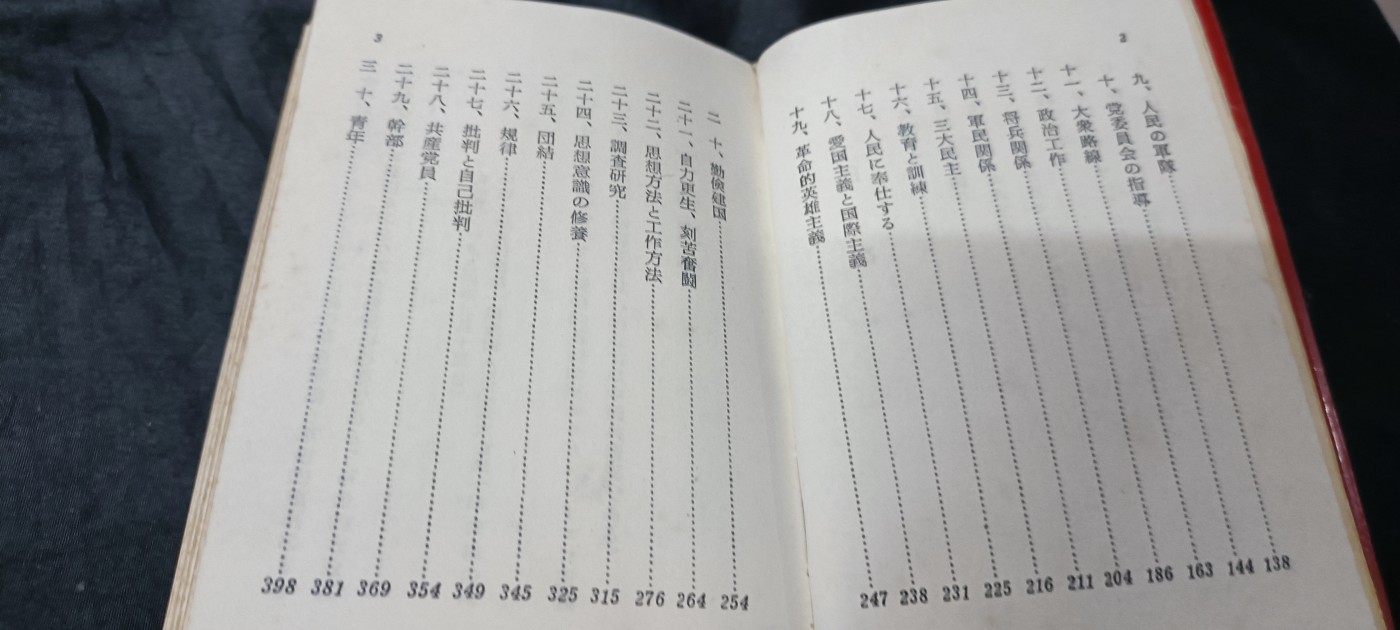 2
九、人民の軍隊……138
十、党委員会の指導……144
十一、大衆路線……163
十二、政治工作……186
十三、将兵関係……204
十四、軍民関係……211
十五、三大民主……216
十六、教育と訓練……225
十七、人民に奉仕する……231
十八、愛国主義と国際主義……238
十九、革命的英雄主義……247
二十、勤倹建国……254
二十一、自力更生、刻苦奮闘……264
二十二、思想方法と工作方法……276
二十三、調査研究……315
二十四、思想意識の修養……325
二十五、団結……345
二十六、規律……349
二十七、批判と自己批判……354
二十八、共産党員……369
二十九、幹部……381
三十、青年……398
3